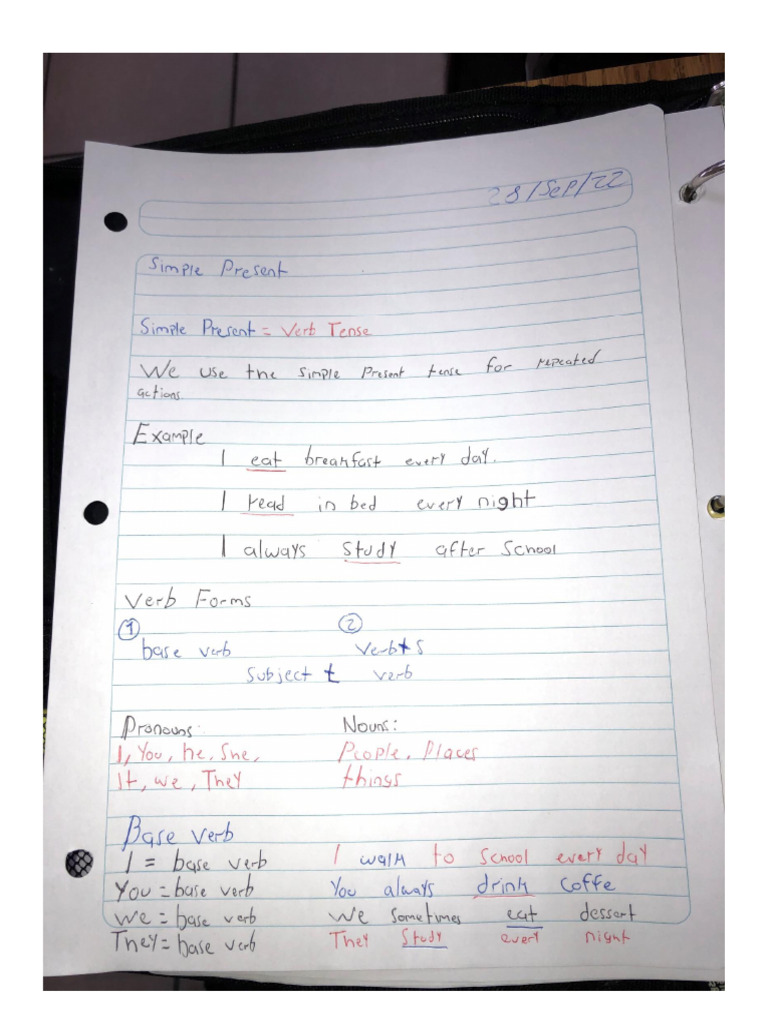 28/Sep/22
Simple Present
Simple Present = Verb Tense
We use the simple Present tense for repeated
actions.
Example
I eat breakfast every day.
I read in bed every night
I always study after School
Verb Forms
1 2
base verb Verb+s
Subject + verb
Pronouns: Nouns:
I, You, he, She, People, Places
It, we, They things
Base verb
I = base verb I walk to School every day
You = base verb You always drink coffe
We = base verb We sometimes eat dessert
They = base verb They Study every night